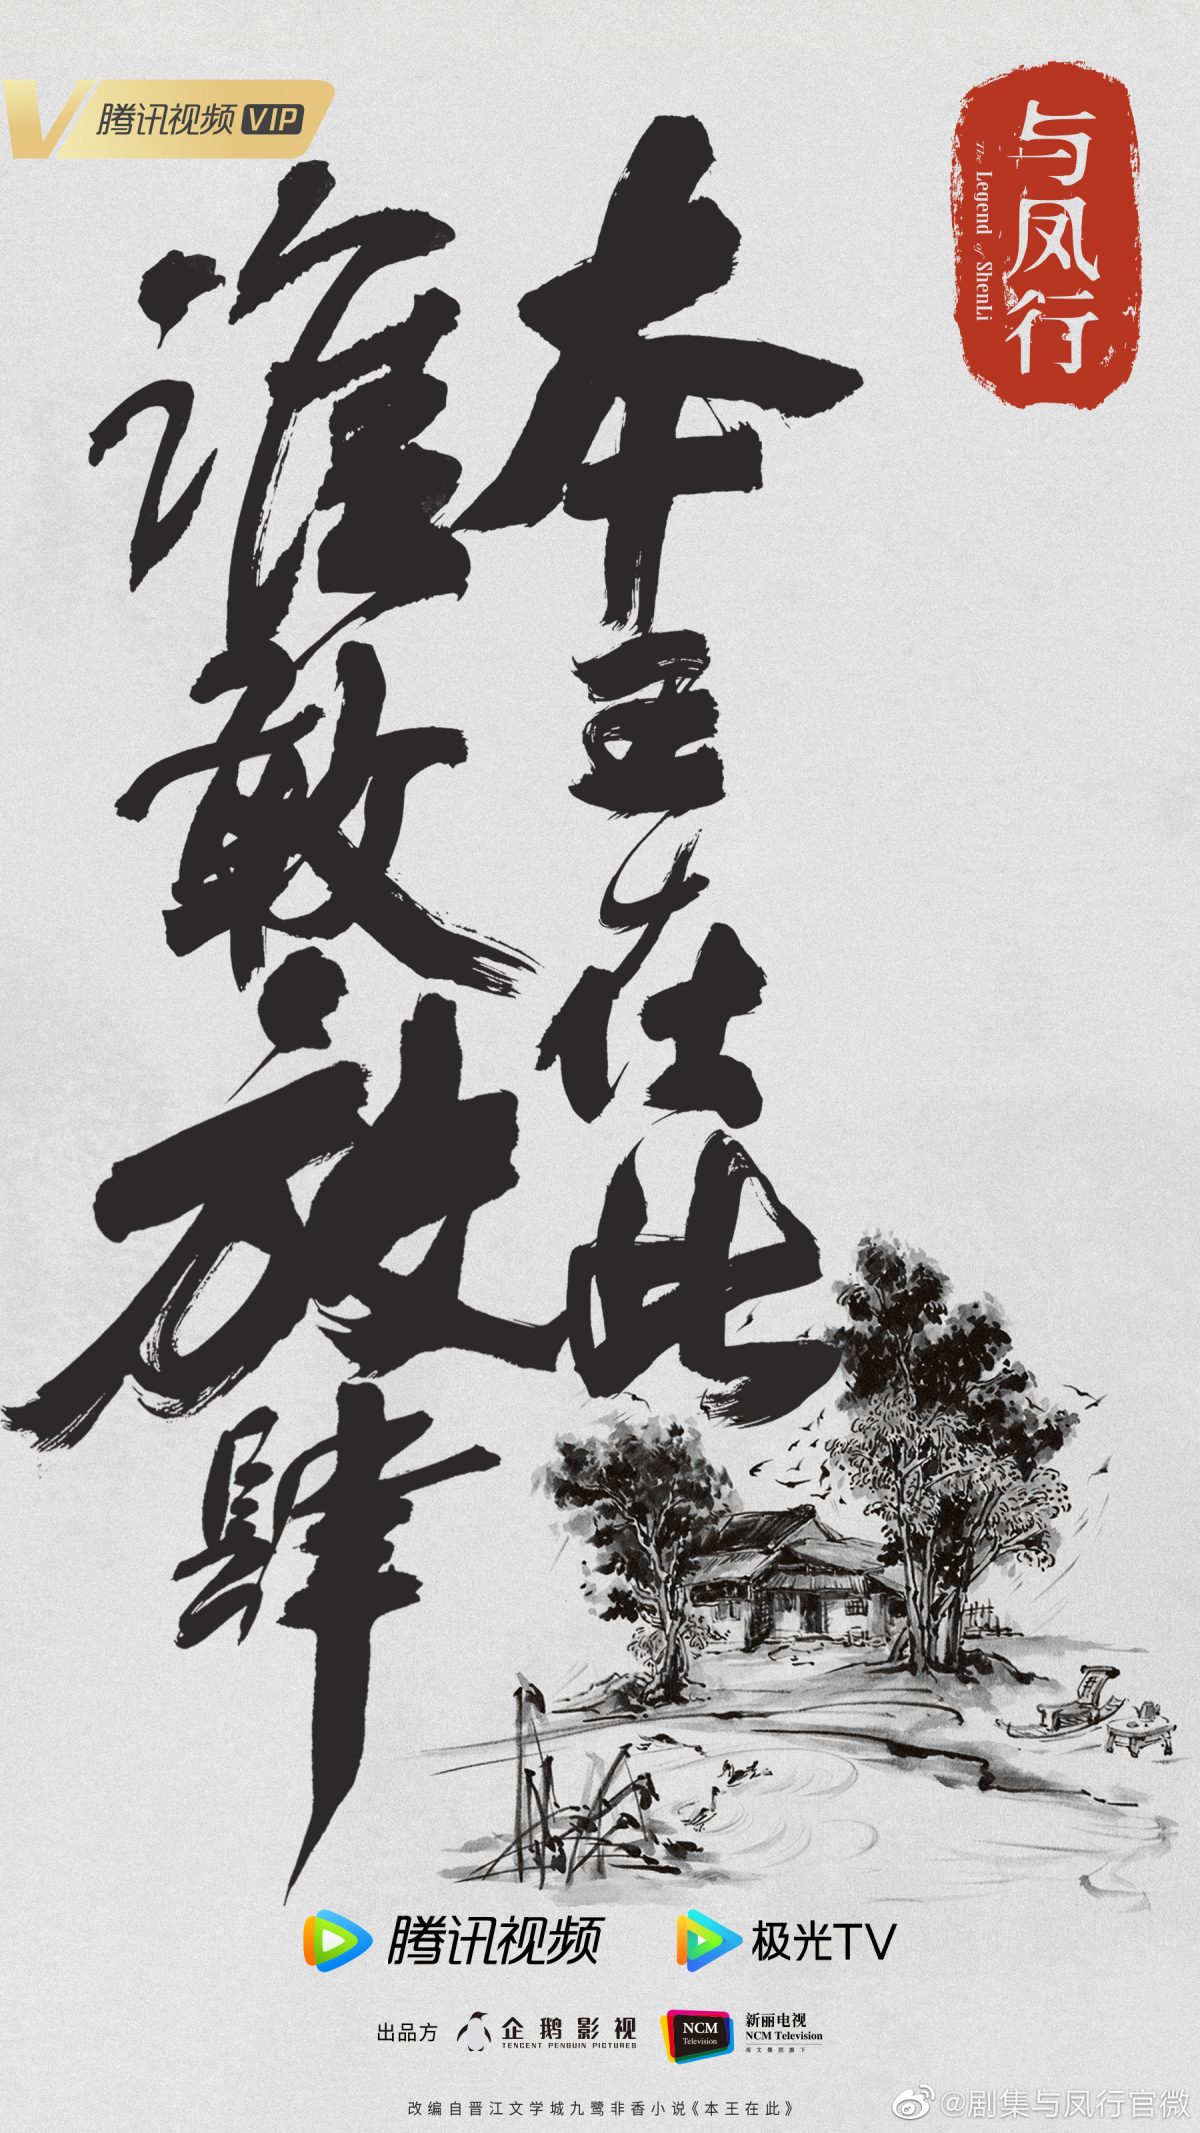 腾讯视频VIP
与凤行
The Legend of ShenLi
本王在此
谁敢放肆
腾讯视频
极光TV
出品方
企鹅影视
TENCENT PENGUIN PICTURES
NCM
Television
新丽电视
NCM Television
阅文集团旗下
改编自晋江文学城九鹭非香小说《本王在此》
@剧集与凤行官微